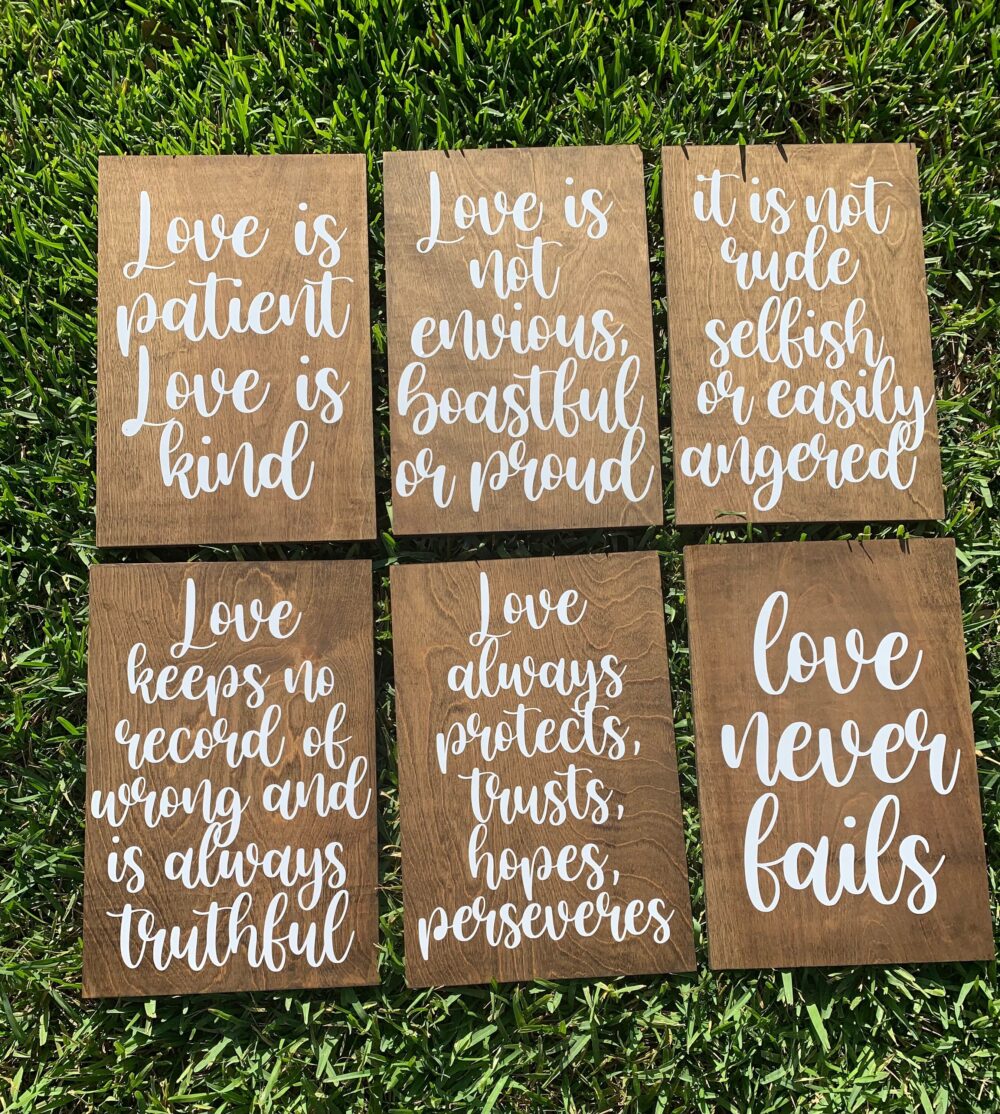 Love is
patient
Love is
kind
Love is
not
envious,
boastful
or proud
it is not
rude
selfish
or easily
angered
Love
keeps no
record of
wrong and
is always
truthful
Love
always
protects,
trusts,
hopes,
perseveres
love
never
fails